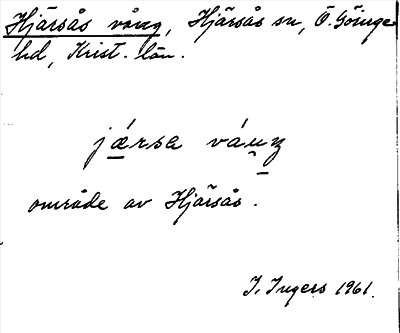 Hjärsås vång, Hjärsås sn, Ö. Göinge
hd, Krist. län.
jǽ̱rsa váu̯ŋ
område av Hjärsås.
I. Ingers 1961.